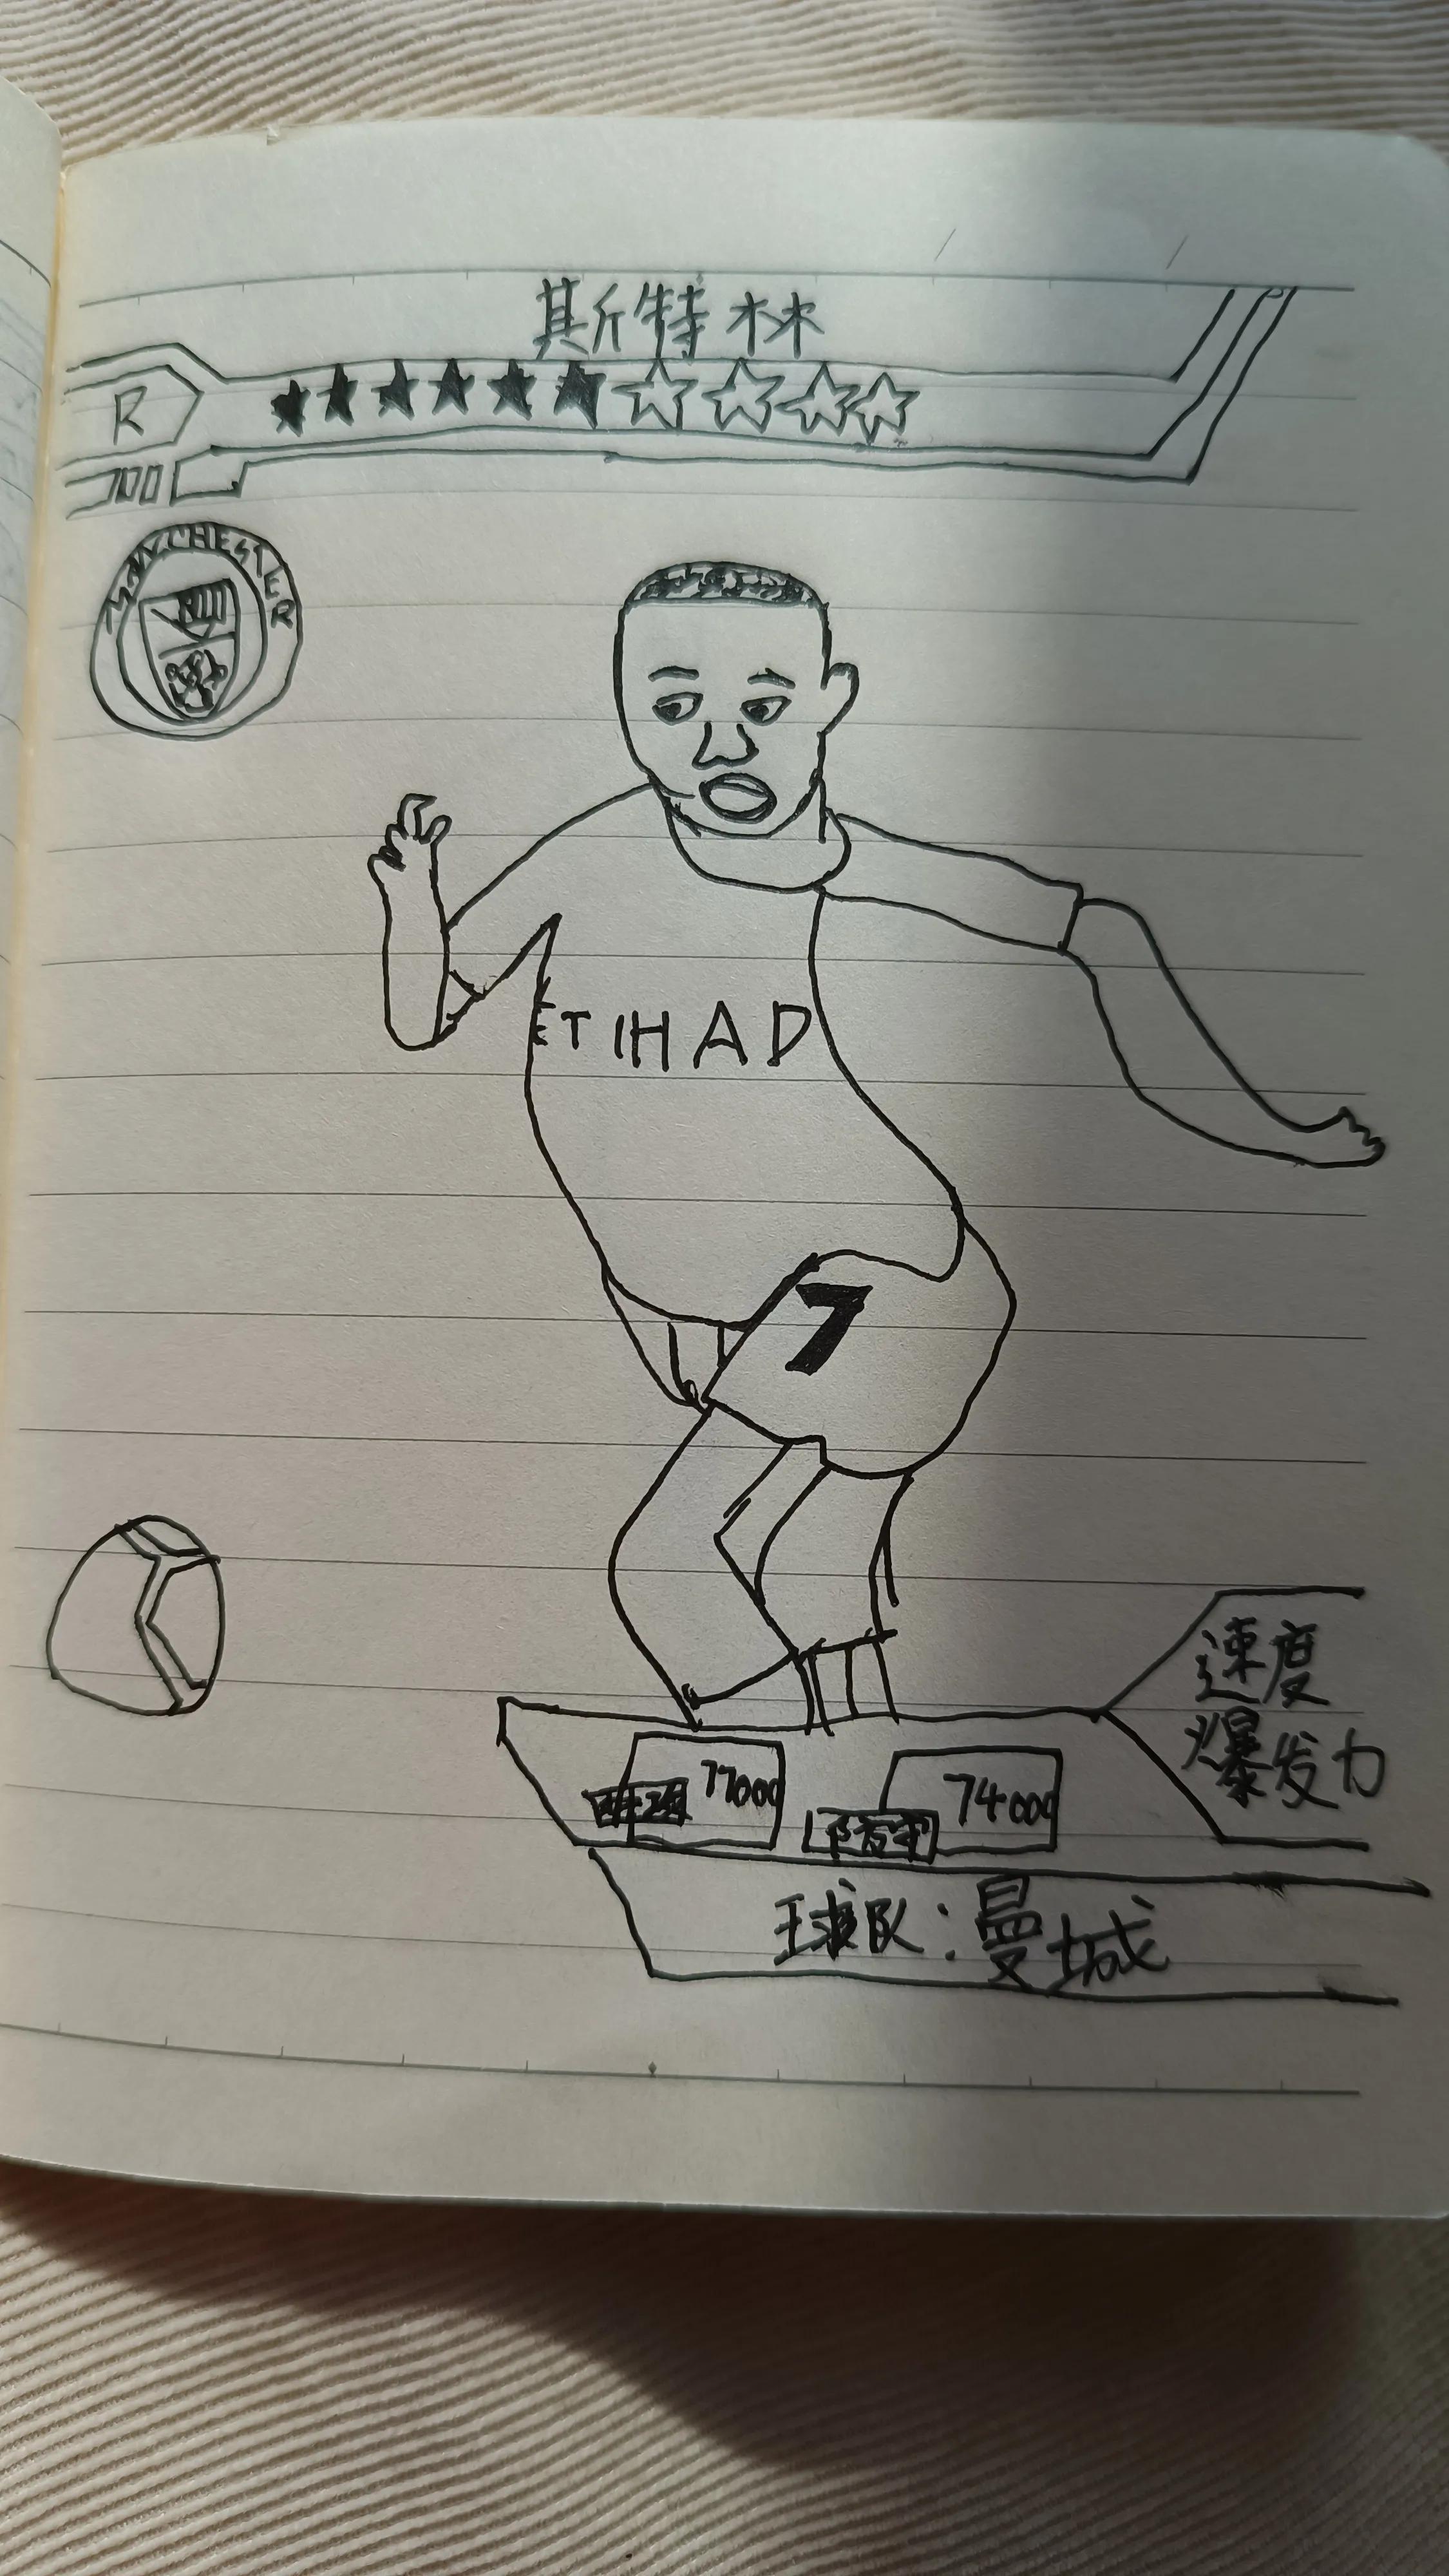 斯特林
R
100
MANCHESTER
ETIHAD
7
速度
爆发力
77000
防守 74000
球队:曼城